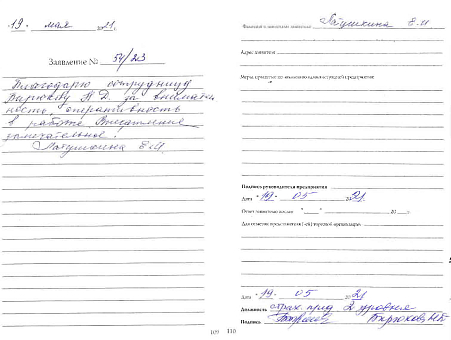 19. мая 2021.
Заявление № 54/203
Благодарю сотрудницу
Бирюкову Н.Б. за внимательность
ность, оперативность
в работе. Впечатление
замечательное.
Латушкина Е.И.
109
Фамилия и заявителя Латушкина Е.И
Адрес заявителя
Меры, принятые по заявлению администрацией предприятия:
Подпись руководителя предприятия
Дата "19" 05 2021
Ответ заявителю послан "____" 20
Для отметок представителя торговой организации
Дата "19" 05 2021
Должность страх. пред 2 уровня
Подпись Бирюкова Н.Б
110